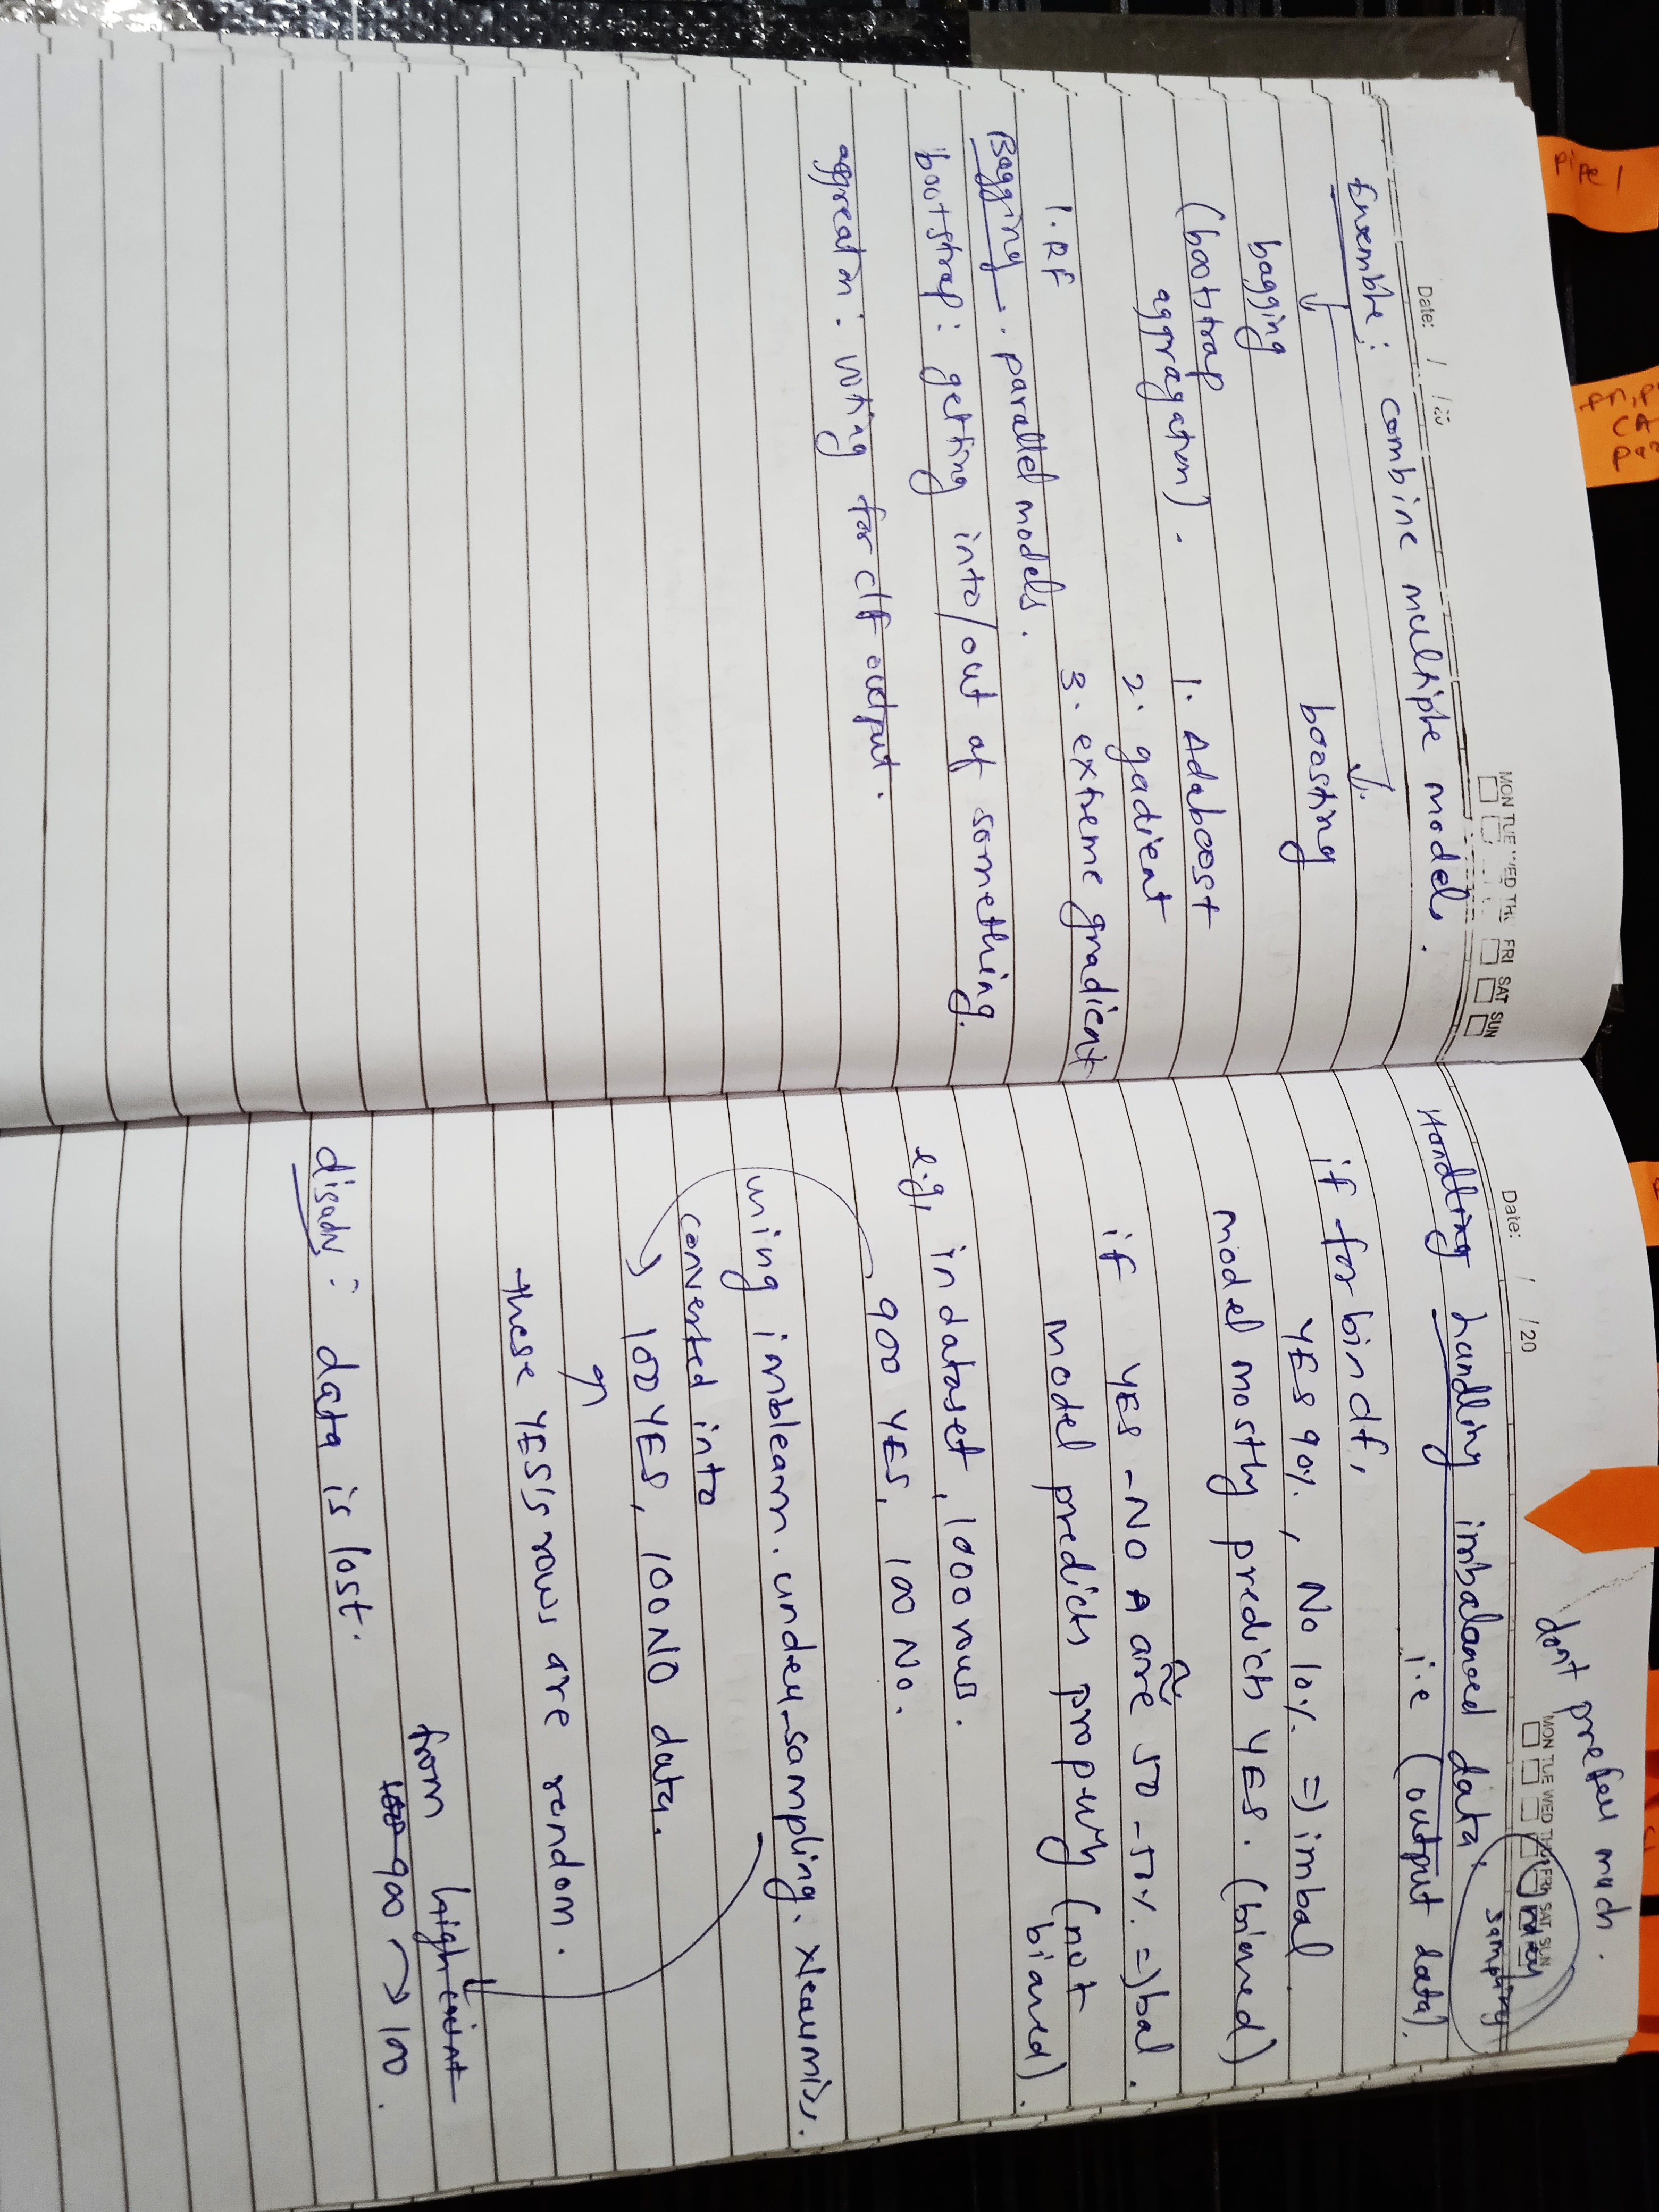 pipe 1
Date: / /20
MON TUE WED THU FRI SAT SUN
Ensemble : combine multiple models.
bagging boosting
(bootstrap
aggragation). 1. Adaboost
2. gadient
1. RF 3. extreme gradient
Bagging - parallel models.
bootstrap : getting into/out of something.
aggreatn : voting for clf output.
don't prefer much.
Date: / /20
MON TUE WED THU FRI SAT SUN
sampling
Handling handling imbalanced data.
i.e (output data).
if for bin df,
YES 90%, NO 10% => imbal
model mostly predicts YES. (biased)
if YES - NO are ≈ 50 - 50% => bal.
model predicts propurly (not
biased).
e.g, in dataset, 1000 rows.
900 YES, 100 NO.
using imblearn. under_sampling. Nearmiss.
converted into
100 YES, 100 NO data.
these YES's rows are random.
from high
900 → 100.
disadv : data is lost.